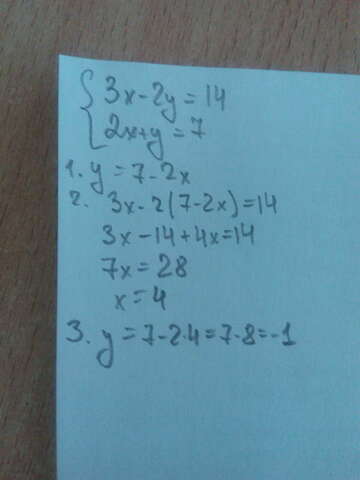 { 3x-2y=14
2x+y=7
1. y=7-2x
2. 3x-2(7-2x)=14
3x-14+4x=14
7x=28
x=4
3. y=7-2·4=7-8=-1